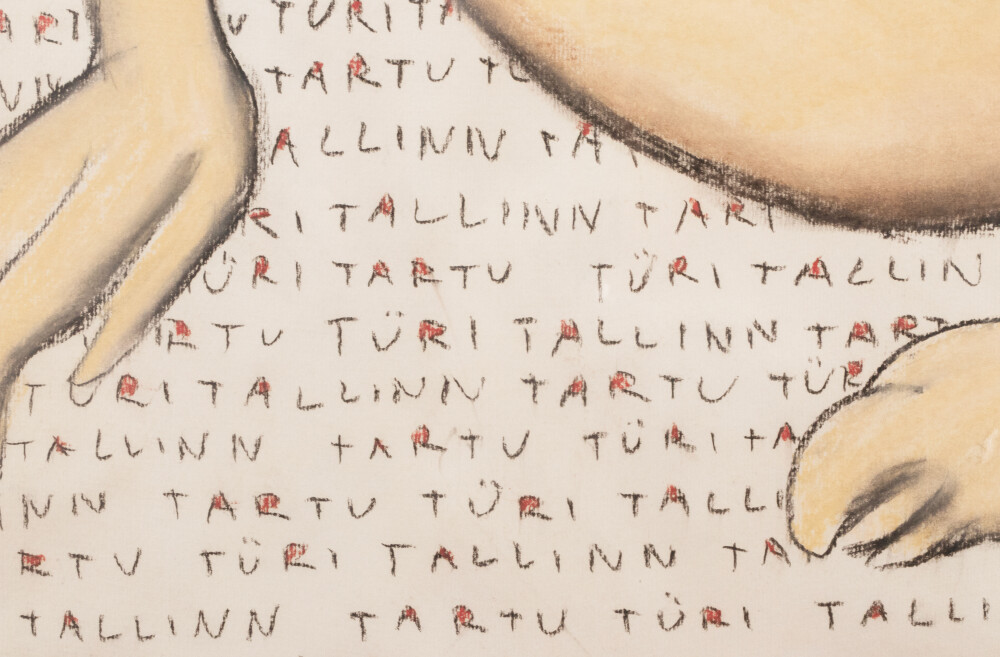 ART TÜRITA
TARTU TÜ
ALLINN TA
RI TALLINN TART
ÜRI TARTU TÜRI TALLINN
RTU TÜRI TALLINN TART
TÜRI TALLINN TARTU TÜR
TALLINN TARTU TÜRI TA
INN TARTU TÜRI TALLI
RTU TÜRI TALLINN TA
TALLINN TARTU TÜRI TALLI